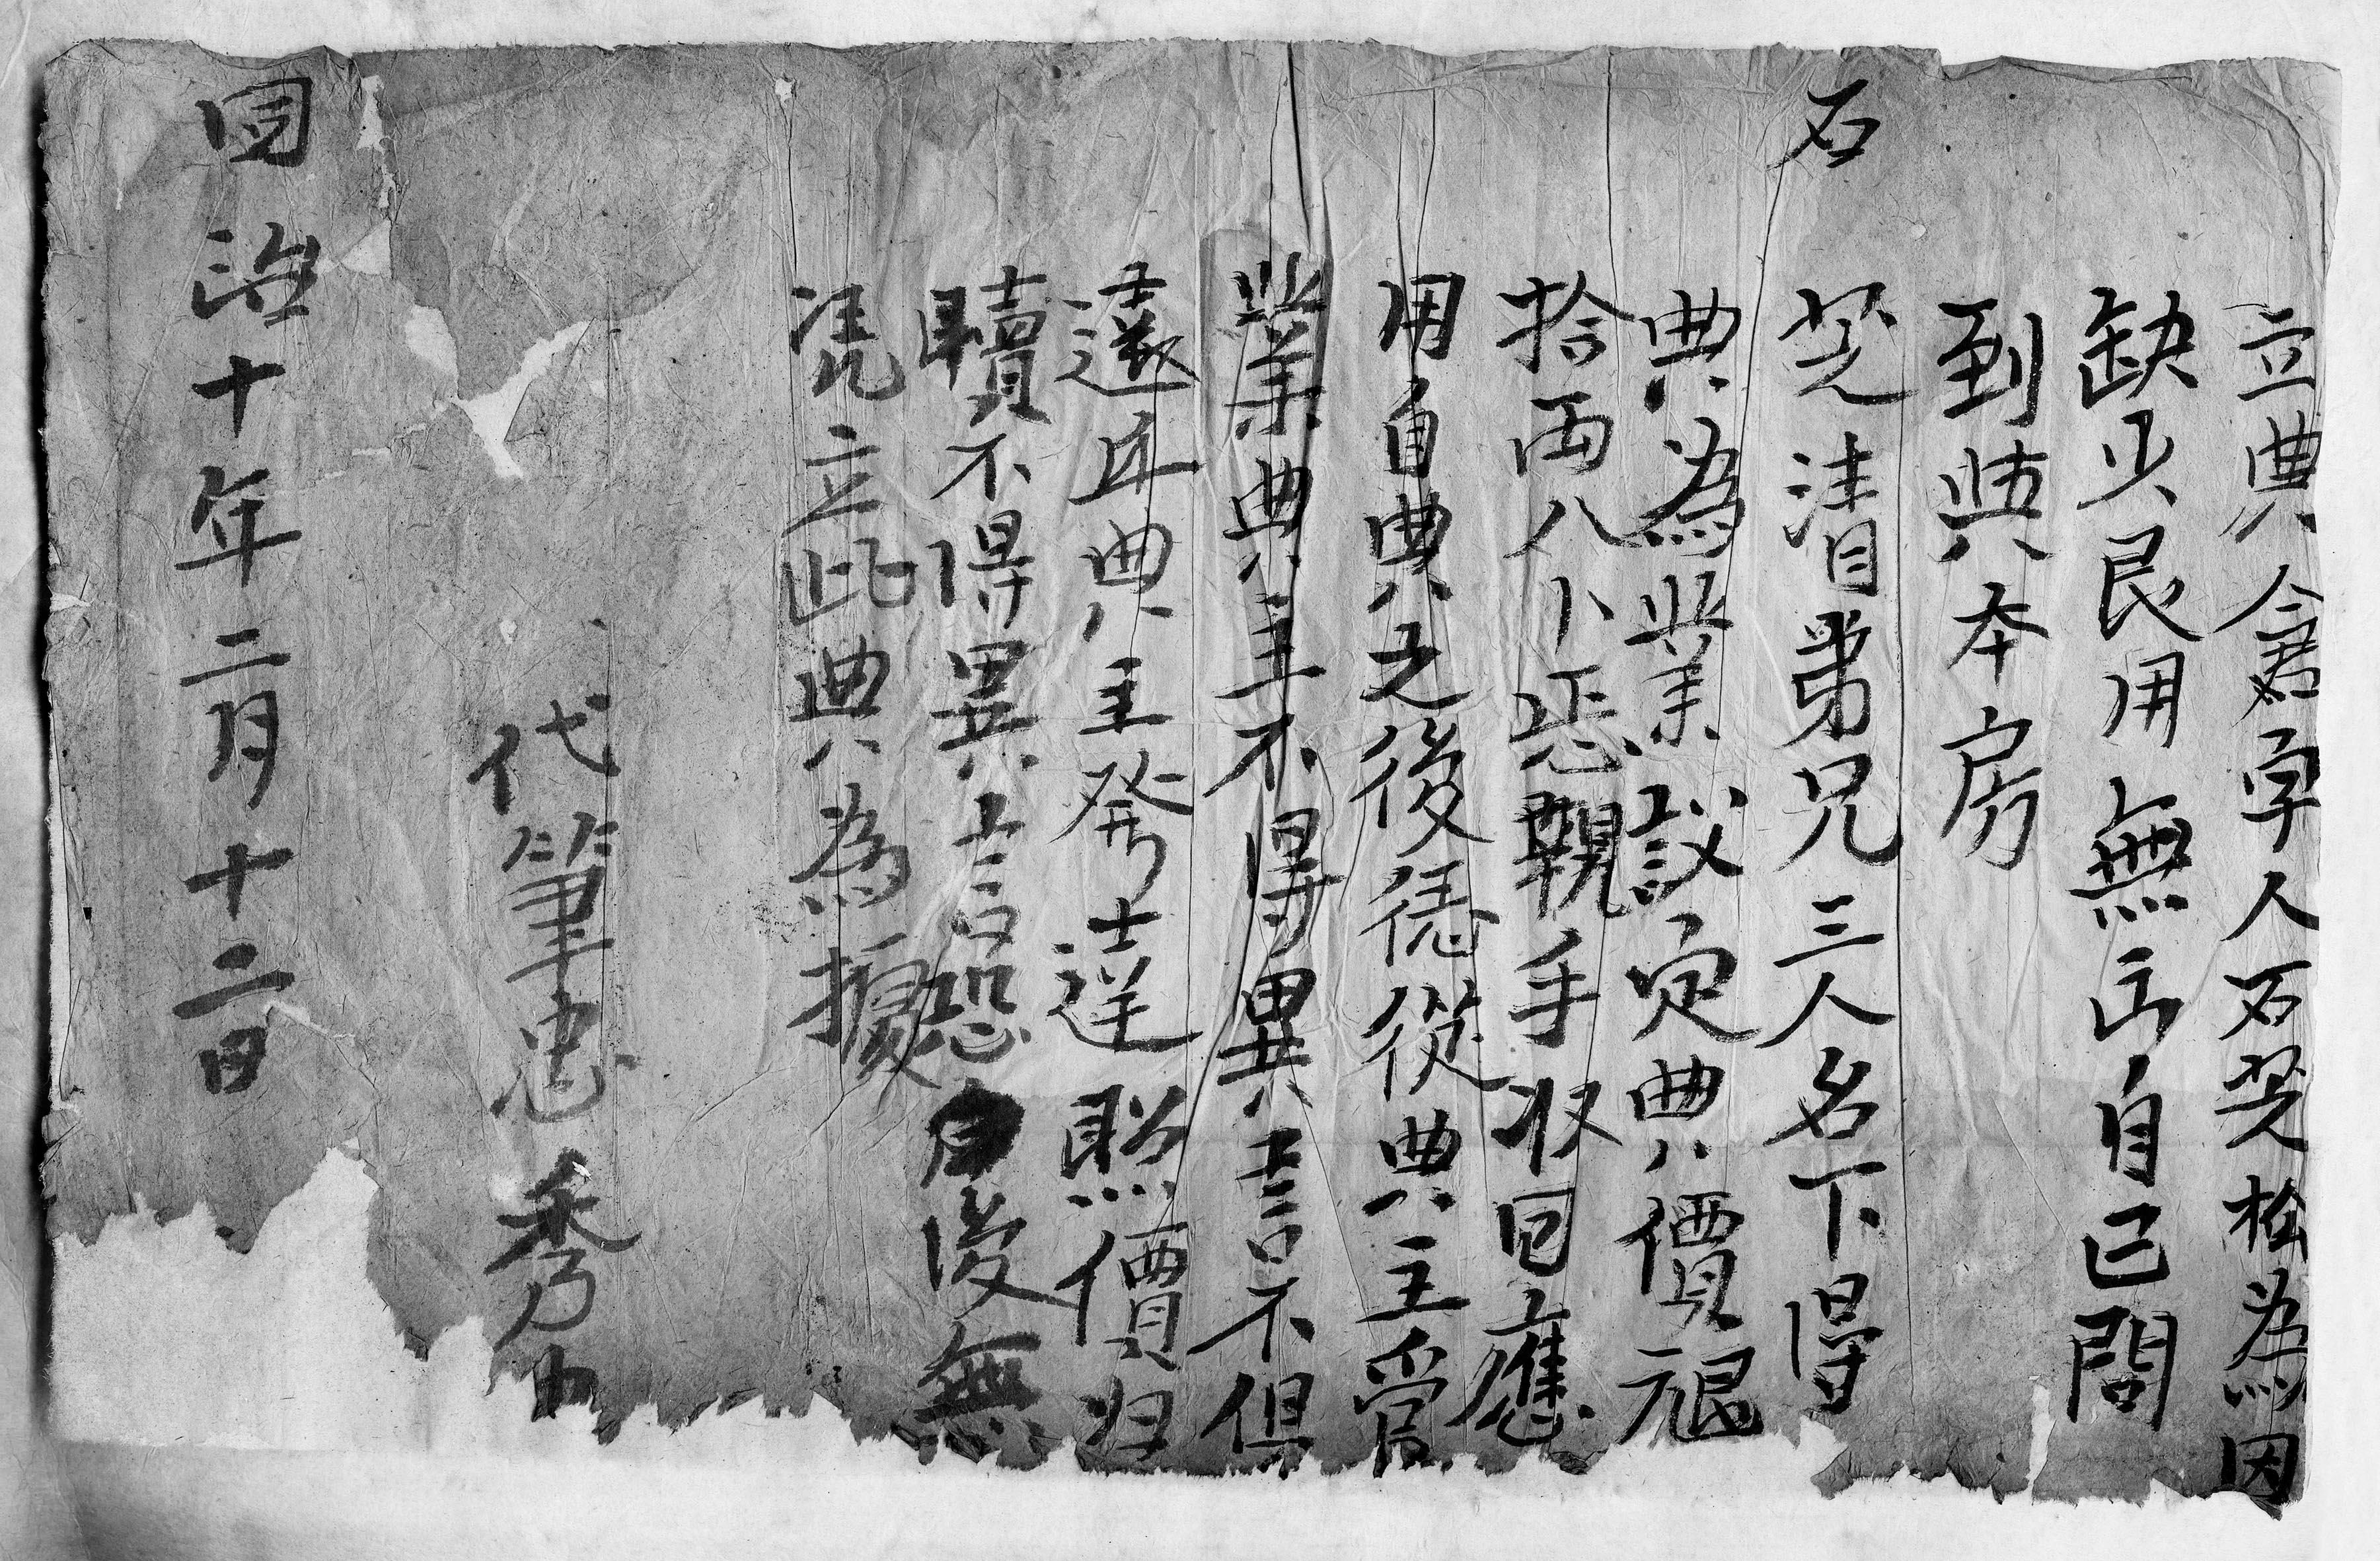 立典會字人石芝松為因
缺少艮用無出自己問
到典本房
石
芝清弟兄三人名下得
典為業議定典價艮
拾両八卜恁親手收回應
用自典之後恁從典主管
業典主不得異言不俱
遠近典主發達照價归
贖不得異言恐後無
凴立此典為據
代筆忠秀
同治十年二月十二日